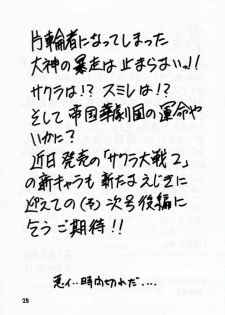 片輪者になってしまった
大神の暴走は止まらないっ!!
サクラは!? スミレは!?
そして帝国華劇団の運命や
いかに?
近日発売の「サクラ大戦2」
の新キャラも新たなえじきに
迎えての(そ)次号後編に
乞うご期待!!
悪ィ‥時間切れだ....
28